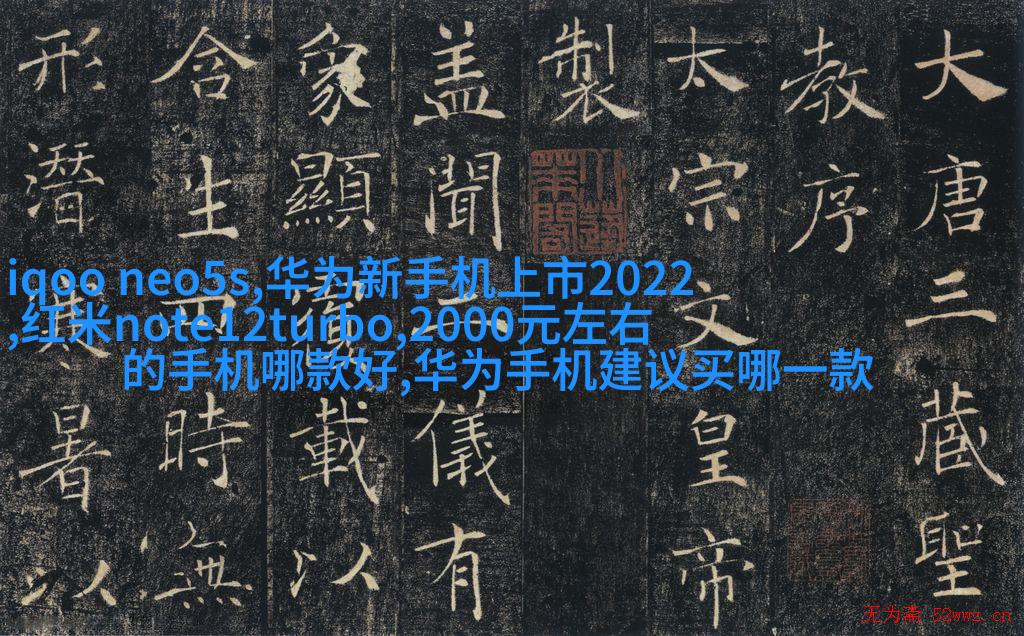 大唐三藏聖
教序
太宗文皇帝
製
盖聞二儀有
象顯覆載以
含生四時無
形潛寒暑以
iqoo neo5s,华为新手机上市2022
,红米note12turbo,2000元左右
的手机哪款好,华为手机建议买哪一款
无为斋 52wwz.cn